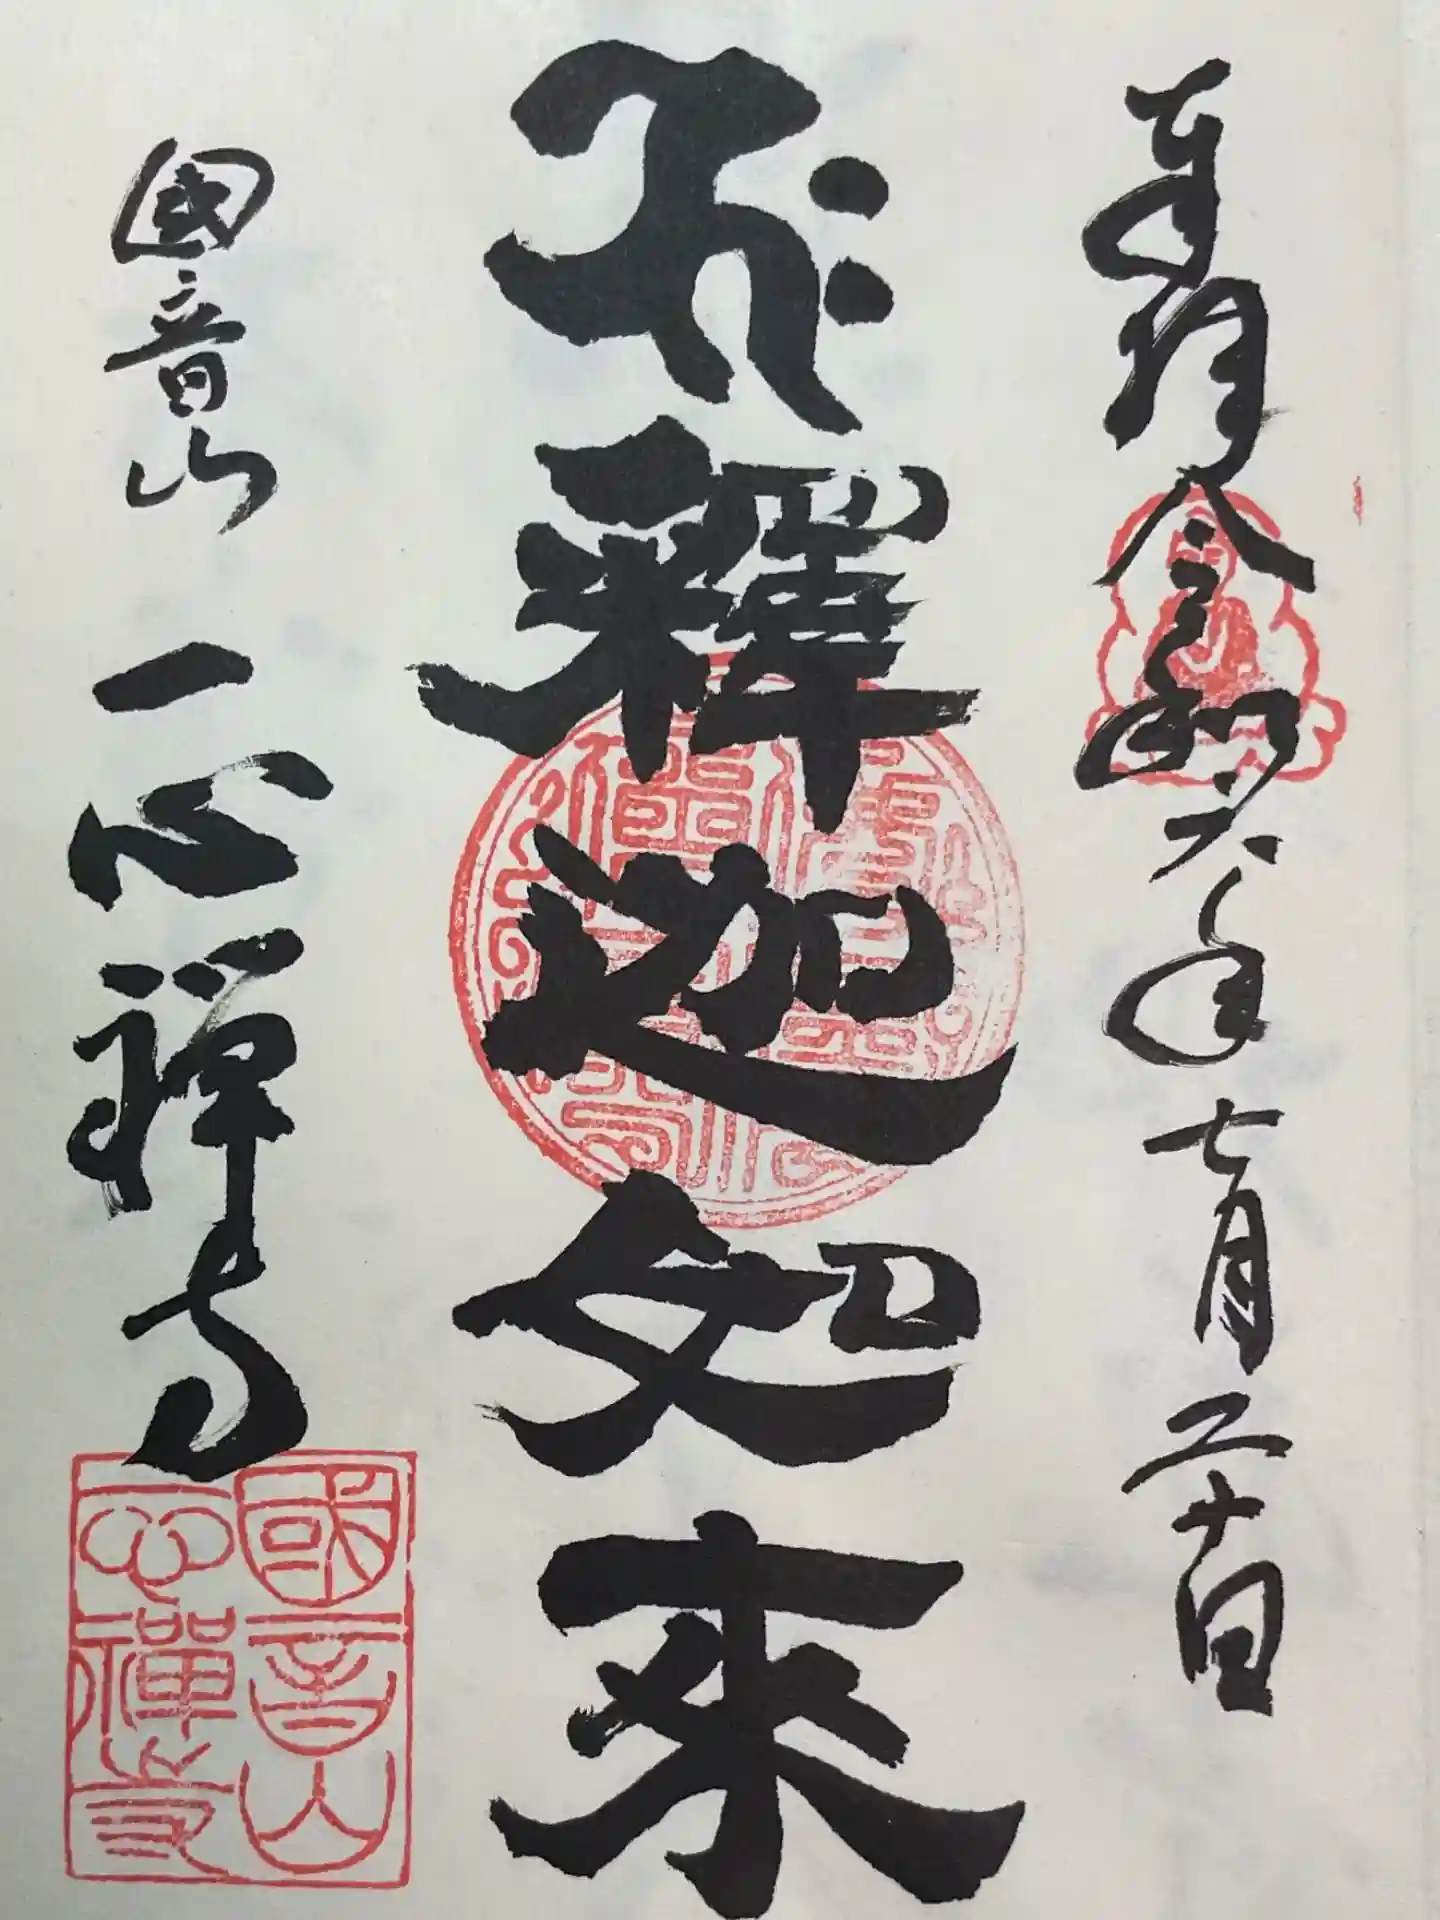 奉拝 令和六年七月二十日
釋迦如来
國音山 一心禅寺
國音山
一心禪寺